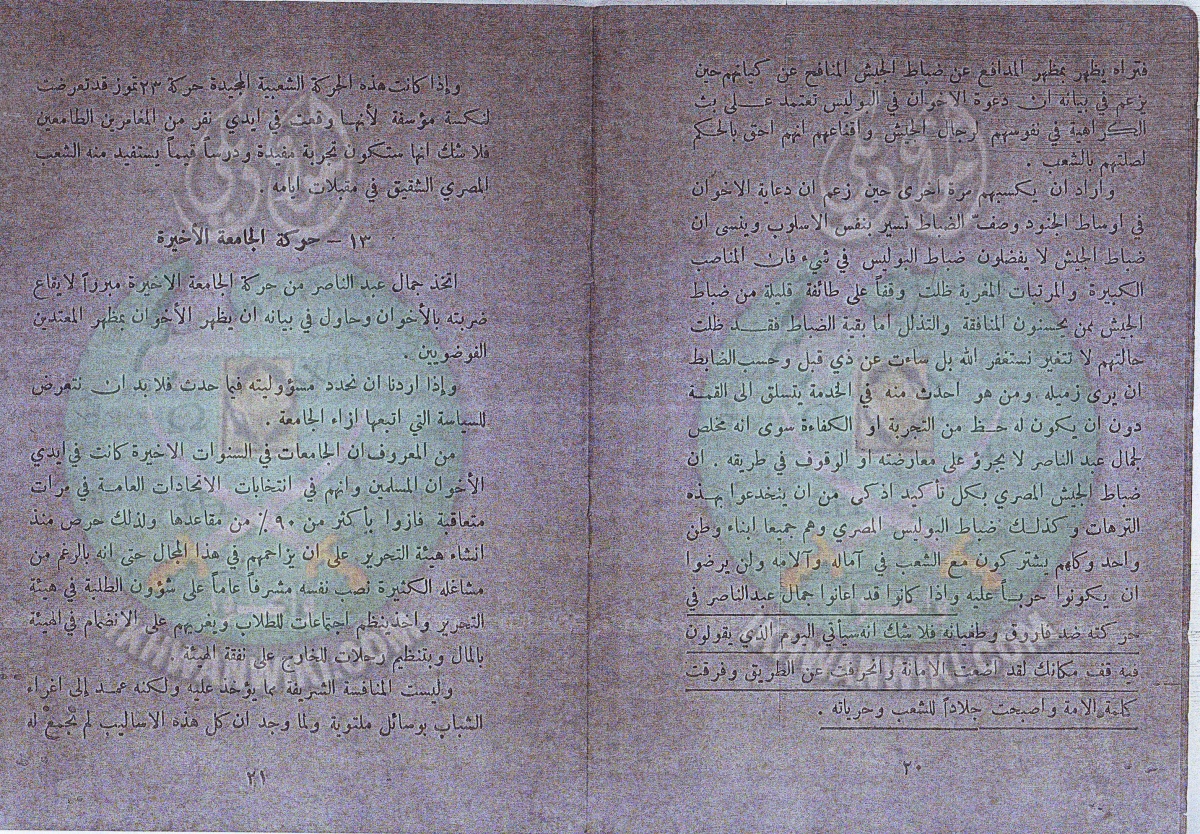 فتراه يظهر بمظهر المدافع عن ضباط الجيش المنافح عن كيانهم حين
يزعم في بيانه ان دعوة الاخوان في البوليس تعتمد عـلى بث
الكراهية في نفوسهم لرجال الجيش واقناعهم انهم احق بالحكم
لصلتهم بالشعب .
وأراد ان يكسبهم مرة اخرى حين زعم ان دعاية الاخوان
في اوساط الجنود وصف الضباط تسير بنفس الاسلوب وينسى ان
ضباط الجيش لا يفضلون ضباط البوليس في شيء فان المناصب
الكبيرة والمرتبات المغرية ظلت وقفاً على طائفة قليلة من ضباط
الجيش ممن يحسنون المنافقة والتذلل اما بقية الضباط فقـد ظلت
حالتهم لا تتغير نستغفر الله بل ساءت عن ذي قبل وحسب الضابط
ان يرى زميله ومن هو احدث منه في الخدمة يتسلق الى القمة
دون ان يكون له حظ من التجربة او الكفاءة سوى انه مخلص
لجمال عبد الناصر لا يجرؤ على معارضته او الوقوف في طريقه . ان
ضباط الجيش المصري بكل تأكيد اذكى من ان ينخدعوا بهذه
الترهات وكذلك ضباط البوليس المصري وهم جميعا ابناء وطن
واحد وكلهم يشتركون مع الشعب في آماله وآلامه ولن يرضوا
ان يكونوا حرباً عليه واذا كانوا قد اعانوا جمال عبد الناصر في
حركته ضد فاروق وطغيانه فلا شك انه سيأتي اليوم الذي يقولون
فيه قف مكانك لقد اضعت الامانة وانحرفت عن الطريق وفرقت
كلمة الامة واصبحت جلاداً للشعب وحرياته .
٢٠
وإذا كانت هذه الحركة الشعبية المجيدة حركة ٢٣ تموز قد تعرضت
لنكسة مؤسفة لأنها وقعت في ايدي نفر من المغامرين الطامعين
فلا شك انها ستكون تجربة مفيدة ودرساً قيماً يستفيد منه الشعب
المصري الشقيق في مقبلات ايامه .
١٣ – حركة الجامعة الأخيرة
اتخذ جمال عبد الناصر من حركة الجامعة الاخيرة مبرراً لايقاع
ضربته بالأخوان وحاول في بيانه ان يظهر الأخوان بمظهر المعتدين
الفوضويين .
وإذا اردنا ان نحدد مسؤوليته فيما حدث فلا بد ان نتعرض
للسياسة التي اتبعها ازاء الجامعة .
من المعروف ان الجامعات في السنوات الاخيرة كانت في ايدي
الأخوان المسلمين وانهم في انتخابات الاتحادات العامة في مرات
متعاقبة فازوا بأكثر من ٩٠ ٪ من مقاعدها ولذلك حرص منذ
انشاء هيئة التحرير على ان يزاحمهم في هذا المجال حتى انه بالرغم من
مشاغله الكثيرة نصب نفسه مشرفاً عاماً على شؤون الطلبة في هيئة
التحرير واخذ ينظم اجتماعات للطلاب ويغريهم على الانضمام في الهيئة
بالمال وبتنظيم رحلات للخارج على نفقة الهيئة
وليست المنافسة الشريفة مما يؤخذ عليه ولكنه عمد إلى اغراء
الشباب بوسائل ملتوية ولما وجد ان كل هذه الاساليب لم تجمع له
٢١
IKHWANWIKI.COM
IKHWANWIKI.COM